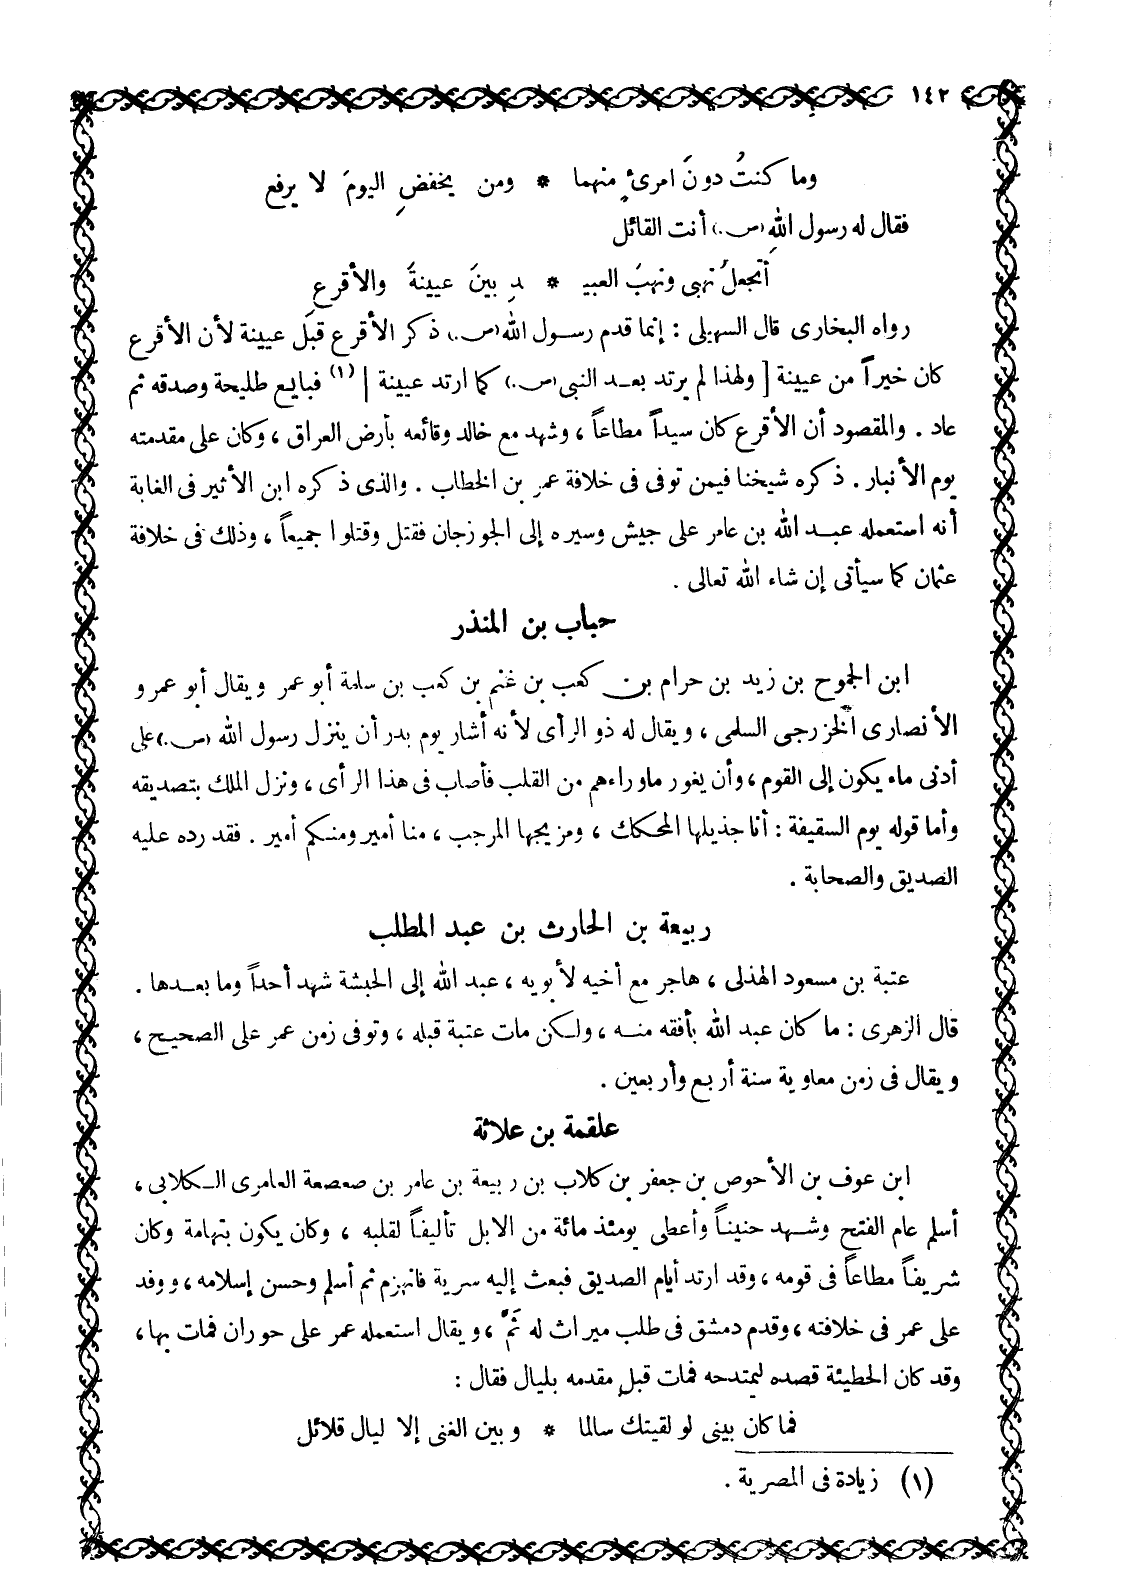 ١٤٢
وما كنتُ دونَ امرئٍ منهما * ومن يخفضِ اليومَ لا يرفع
فقال له رسول اللهِ (ص.) أنت القائل
أتجعلُ نهبى ونهبَ العبيـ * ـدِ بينَ عيينةَ والأقرعِ
رواه البخارى قال السهيلى : إنما قدم رسول الله (ص.) ذكر الأقرع قبل عيينة لأن الأقرع
كان خيراً من عيينة [ ولهذا لم يرتد بعد النبى (ص.) كما ارتد عيينة ] (١) فبايع طليحة وصدقه ثم
عاد . والمقصود أن الأقرع كان سيداً مطاعاً ، وشهد مع خالد وقائعه بأرض العراق ، وكان على مقدمته
يوم الأنبار . ذكره شيخنا فيمن توفى فى خلافة عمر بن الخطاب . والذى ذكره ابن الأثير فى الغابة
أنه استعمله عبد الله بن عامر على جيش وسيره إلى الجوزجان فقتل وقتلوا جميعاً ، وذلك فى خلافة
عثمان كما سيأتى إن شاء الله تعالى .
حباب بن المنذر
ابن الجموح بن زيد بن حرام بن كعب بن غنم بن كعب بن سلمة أبو عمر ويقال أبو عمرو
الأنصارى الخزرجى السلمى ، ويقال له ذو الرأى لأنه أشار يوم بدر أن ينزل رسول الله (ص.) على
أدنى ماء يكون إلى القوم ، وأن يغور ماوراءهم من القلب فأصاب فى هذا الرأى ، ونزل الملك بتصديقه
وأما قوله يوم السقيفة : أنا جذيلها المحكك ، ومزيجها المرجب ، منا أمير ومنكم أمير . فقد رده عليه
الصديق والصحابة .
ربيعة بن الحارث بن عبد المطلب
عتبة بن مسعود الهذلى ، هاجر مع أخيه لأبويه ، عبد الله إلى الحبشة شهد أحداً وما بعدها .
قال الزهرى : ما كان عبد الله بأفقه منه ، ولكن مات عتبة قبله ، وتوفى زمن عمر على الصحيح ،
ويقال فى زمن معاوية سنة أربع وأربعين .
علقمة بن علاثة
ابن عوف بن الأحوص بن جعفر بن كلاب بن ربيعة بن عامر بن صعصعة العامرى الكلابى ،
أسلم عام الفتح وشهد حنيناً وأعطى يومئذ مائة من الابل تأليفاً لقلبه ، وكان يكون بتهامة وكان
شريفاً مطاعاً فى قومه ، وقد ارتد أيام الصديق فبعث إليه سرية فانهزم ثم أسلم وحسن إسلامه ، ووفد
على عمر فى خلافته ، وقدم دمشق فى طلب ميراث له ثَمَّ ، ويقال استعمله عمر على حوران فمات بها ،
وقد كان الحطيئة قصده ليمتدحه فمات قبل مقدمه بليال فقال :
فما كان بينى لو لقيتك سالما * وبين الغنى إلا ليال قلائل
(١) زيادة فى المصرية .